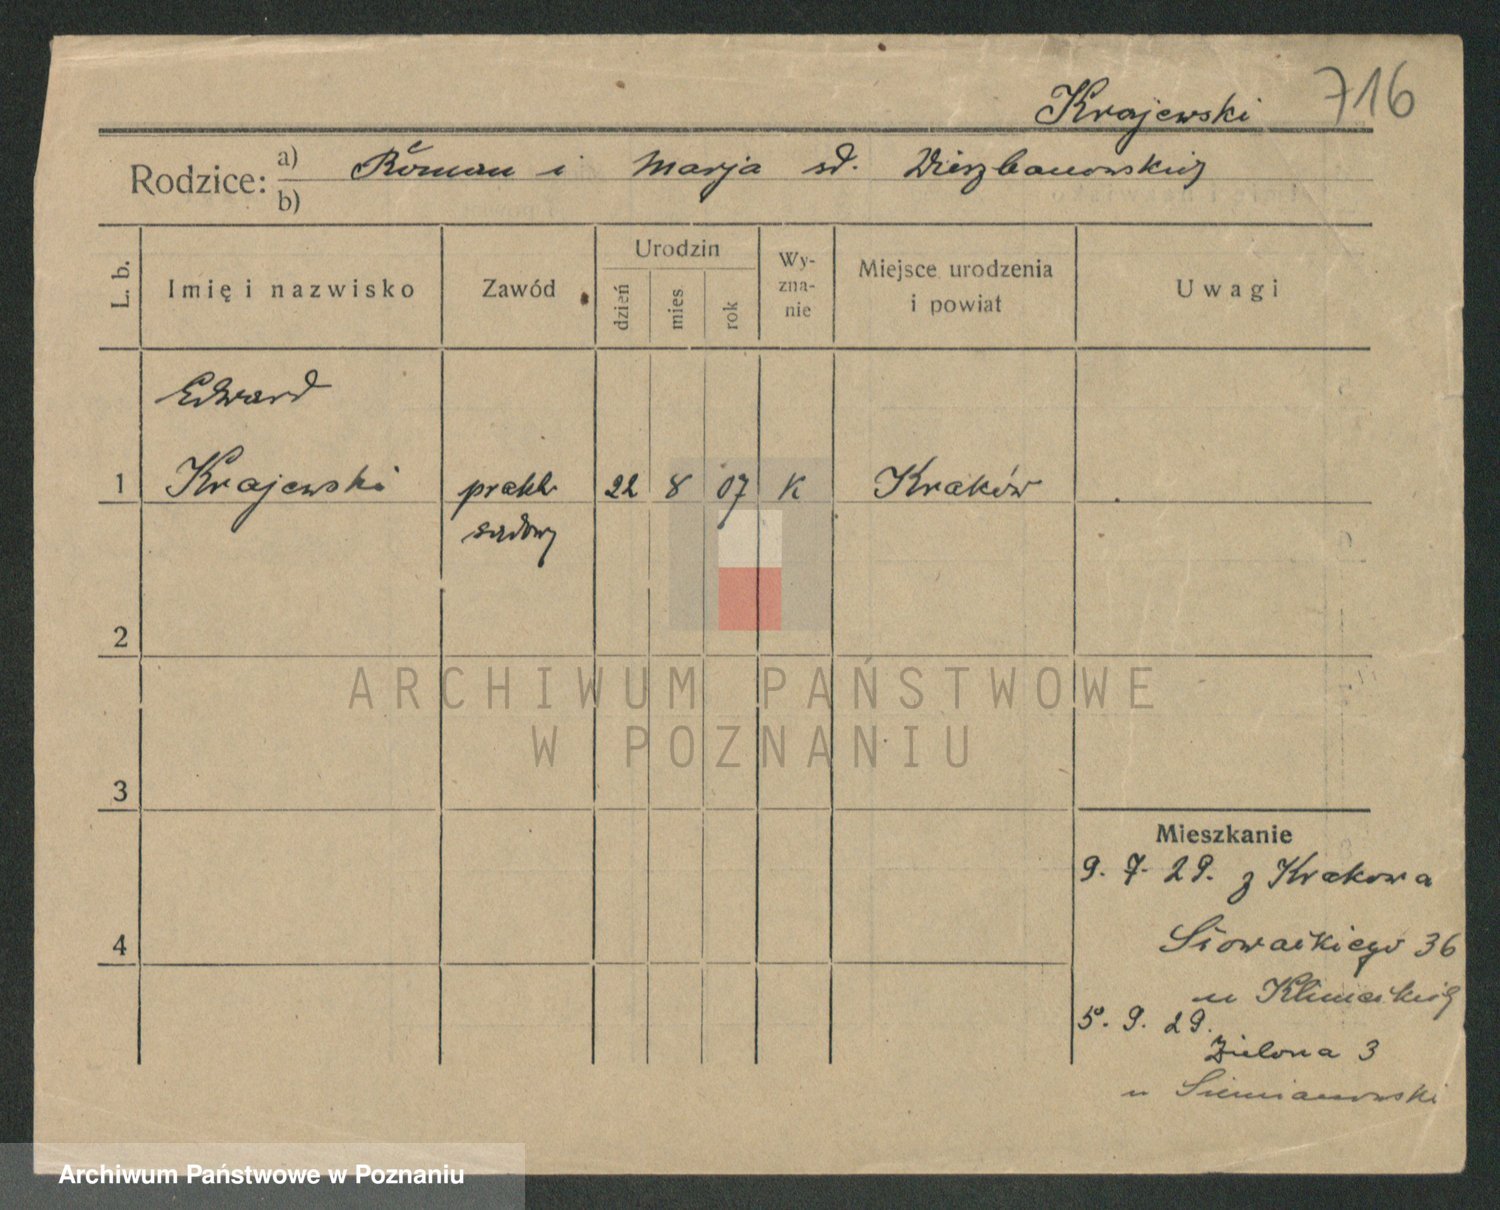 716
Krajewski
Rodzice: a) Roman i Marja zd. Wierzbanowskiej
b)
L. b. Imię i nazwisko Zawód Urodzin dzień mies rok Wy-zna-nie Miejsce urodzenia i powiat Uwagi
Edward
1 Krajewski prakt. 22 8 07 K Kraków
sądowy
2
3
4
Mieszkanie
9. 7. 29. z Krakowa
Słowackiego 36
u Klimeckiej
5. 9. 29.
Zielona 3
u Siemianowski
ARCHIWUM PAŃSTWOWE
W POZNANIU
Archiwum Państwowe w Poznaniu